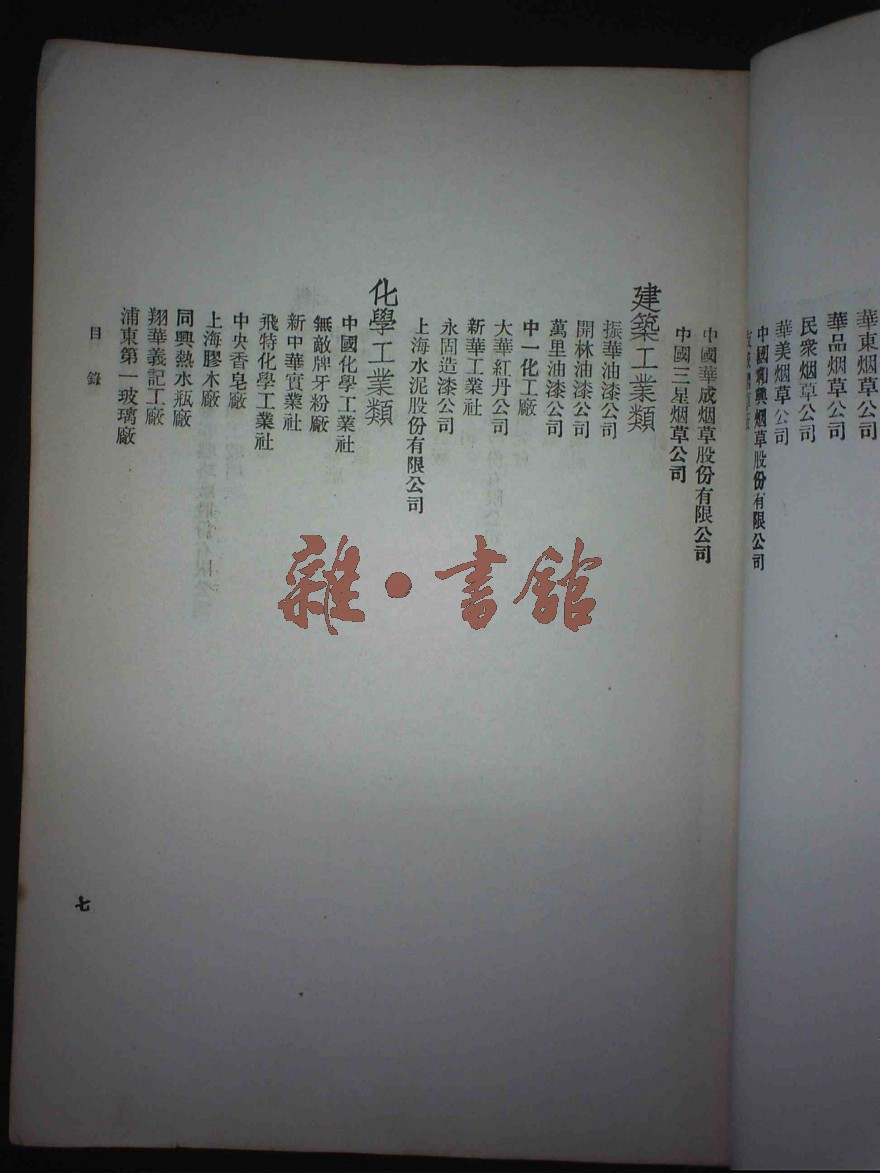 華東烟草公司
華品烟草公司
民衆烟草公司
華美烟草公司
中國和興烟草股份有限公司
中國華成烟草股份有限公司
中國三星烟草公司
建築工業類
振華油漆公司
開林油漆公司
萬里油漆公司
中一化工廠
大華紅丹公司
新華工業社
永固造漆公司
上海水泥股份有限公司
化學工業類
中國化學工業社
無敵牌牙粉廠
新中華實業社
飛特化學工業社
中央香皂廠
上海膠木廠
同興熱水瓶廠
翔華義記工廠
浦東第一玻璃廠
目錄
七
雜·書館